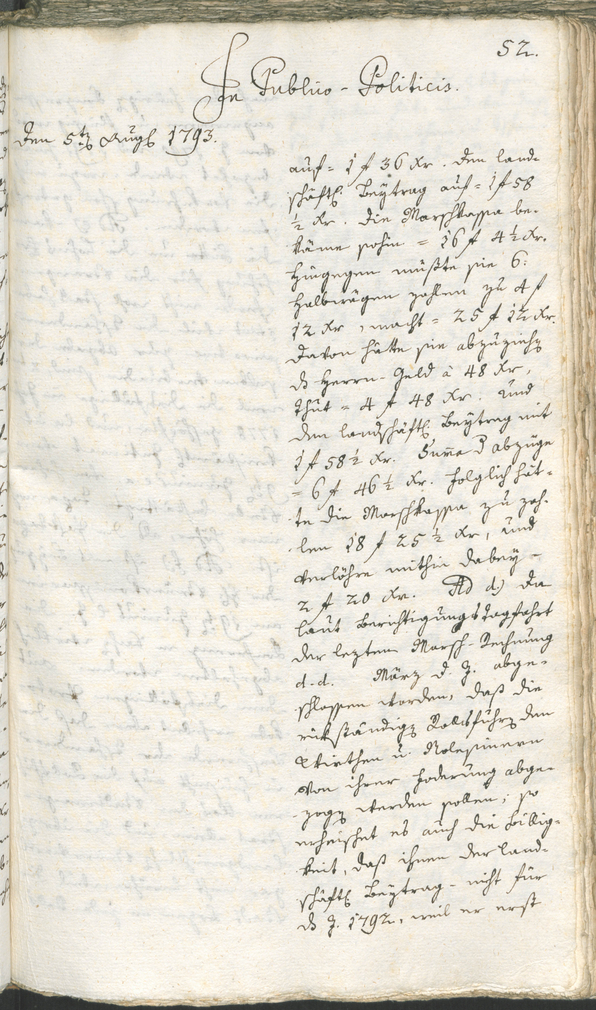 52.
In Publico-Politicis.
Den 5ten Augl 1793.
auf = 1 f 36 Kr. den land-
schäftl. Beytrag auf = 1 f 58
½ Kr. die Marschkassa be-
käme sohin = 16 f 4½ Kr.
hingegen müßte sie 6.
halbwägen zahlen zu 4 f
12 Kr, macht = 25 f 12 Kr.
davon hätte sie abzuziehen
das Herrn-Geld à 48 Kr,
thut = 4 f 48 Kr. und
den landschäftl. Beytrag mit
1 f 58½ Kr. Summe d abzüge
= 6 f 46½ Kr. folglich hät-
te die Marschkassa zu zah-
len 18 f 25½ Kr, und
verlöhre mithin dabey -
2 f 20 Kr. Ad d) da
laut Berichtigungstagfahrt
der lezten Marsch-Rechnung
d.d. März d. J. abge-
schlossen worden, daß die
rükständigen den
Wirthen u.
von ihrer Foderung abge-
zogen werden sollen; so
erheischet es auch die Billig-
keit, daß ihnen der land-
schäftl. Beytrag - nicht für
das J. 1792, weil er erst